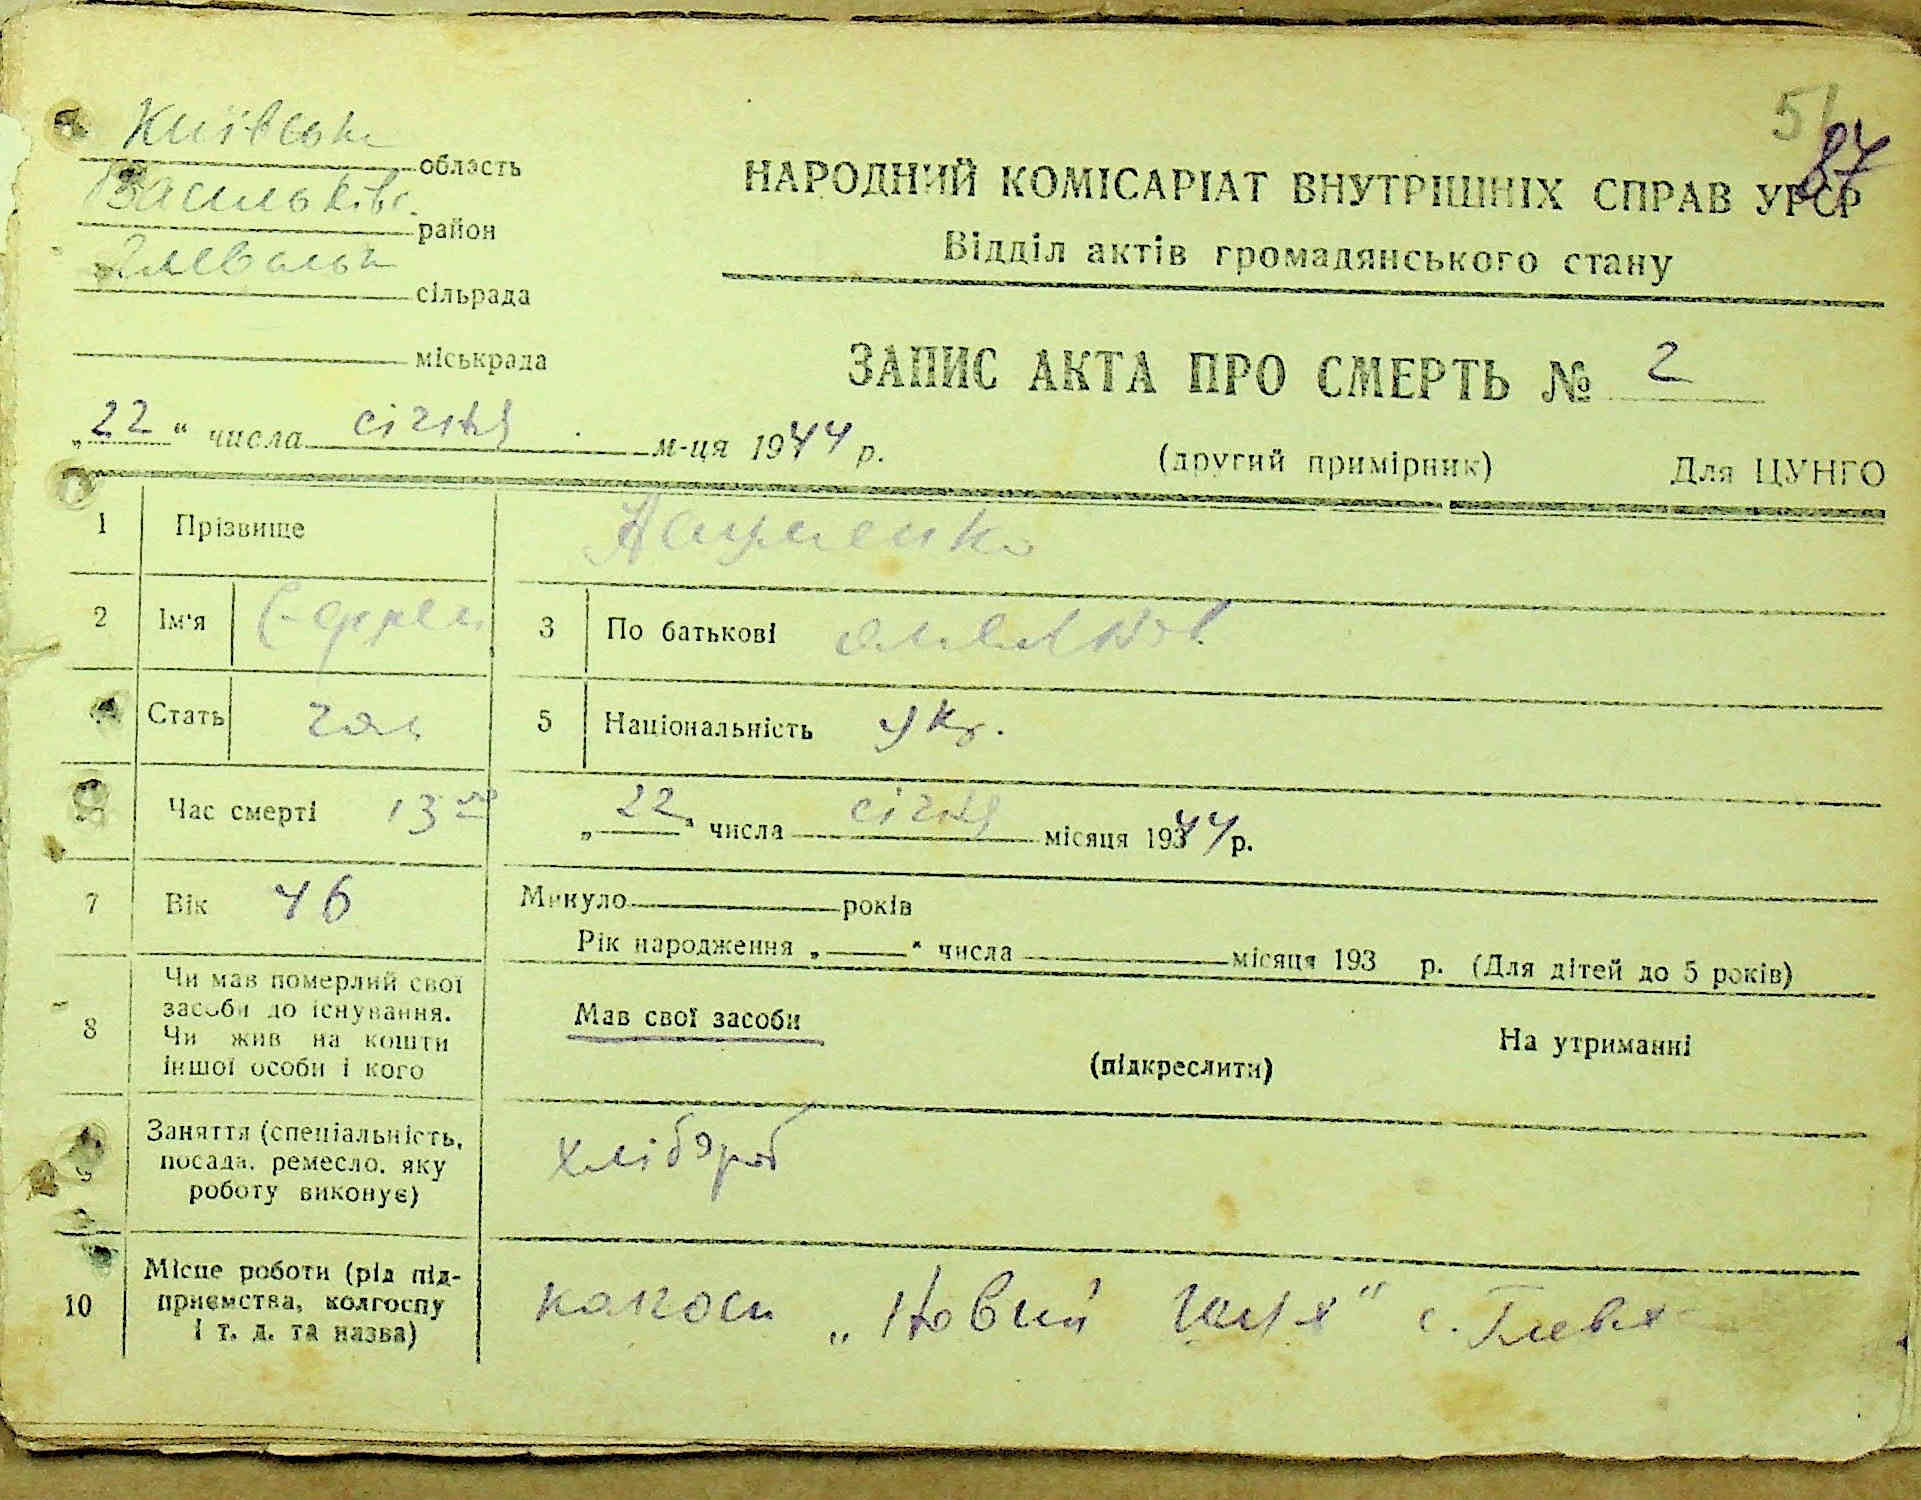 51
87
Київська область
Васильків. район
сільрада
міськрада
НАРОДНИЙ КОМІСАРІАТ ВНУТРІШНІХ СПРАВ УРСР
Відділ актів громадянського стану
ЗАПИС АКТА ПРО СМЕРТЬ № 2
„22“ числа січня м-ця 1944 р.
(другий примірник) Для ЦУНГО
1 Прізвище
2 Ім'я 3 По батькові
Стать чол. 5 Національність укр.
Час смерті 13 „22“ числа січня місяця 1944 р.
7 Вік 46 Минуло років
Рік народження „ “ числа місяця 193 р. (Для дітей до 5 років)
8 Чи мав померлий свої
засоби до існування.
Чи жив на кошти
іншої особи і кого
Мав свої засоби
(підкреслити)
На утриманні
9 Заняття (спеціальність,
посада, ремесло, яку
роботу виконує)
хлібороб
10 Місце роботи (рід під-
приємства, колгоспу
і т. д. та назва)
„Новий шлях“ с. Глеваха